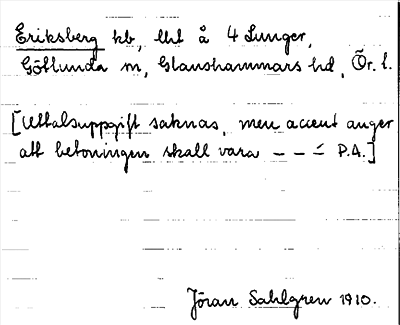 Eriksberg kb, lht å 4 Sunger,
Götlunda sn, Glanshammars hd, Ör. l.
[Uttalsuppgift saknas, men accent anger
att betoningen skall vara – – –́ P.A.]
Jöran Sahlgren 1910.